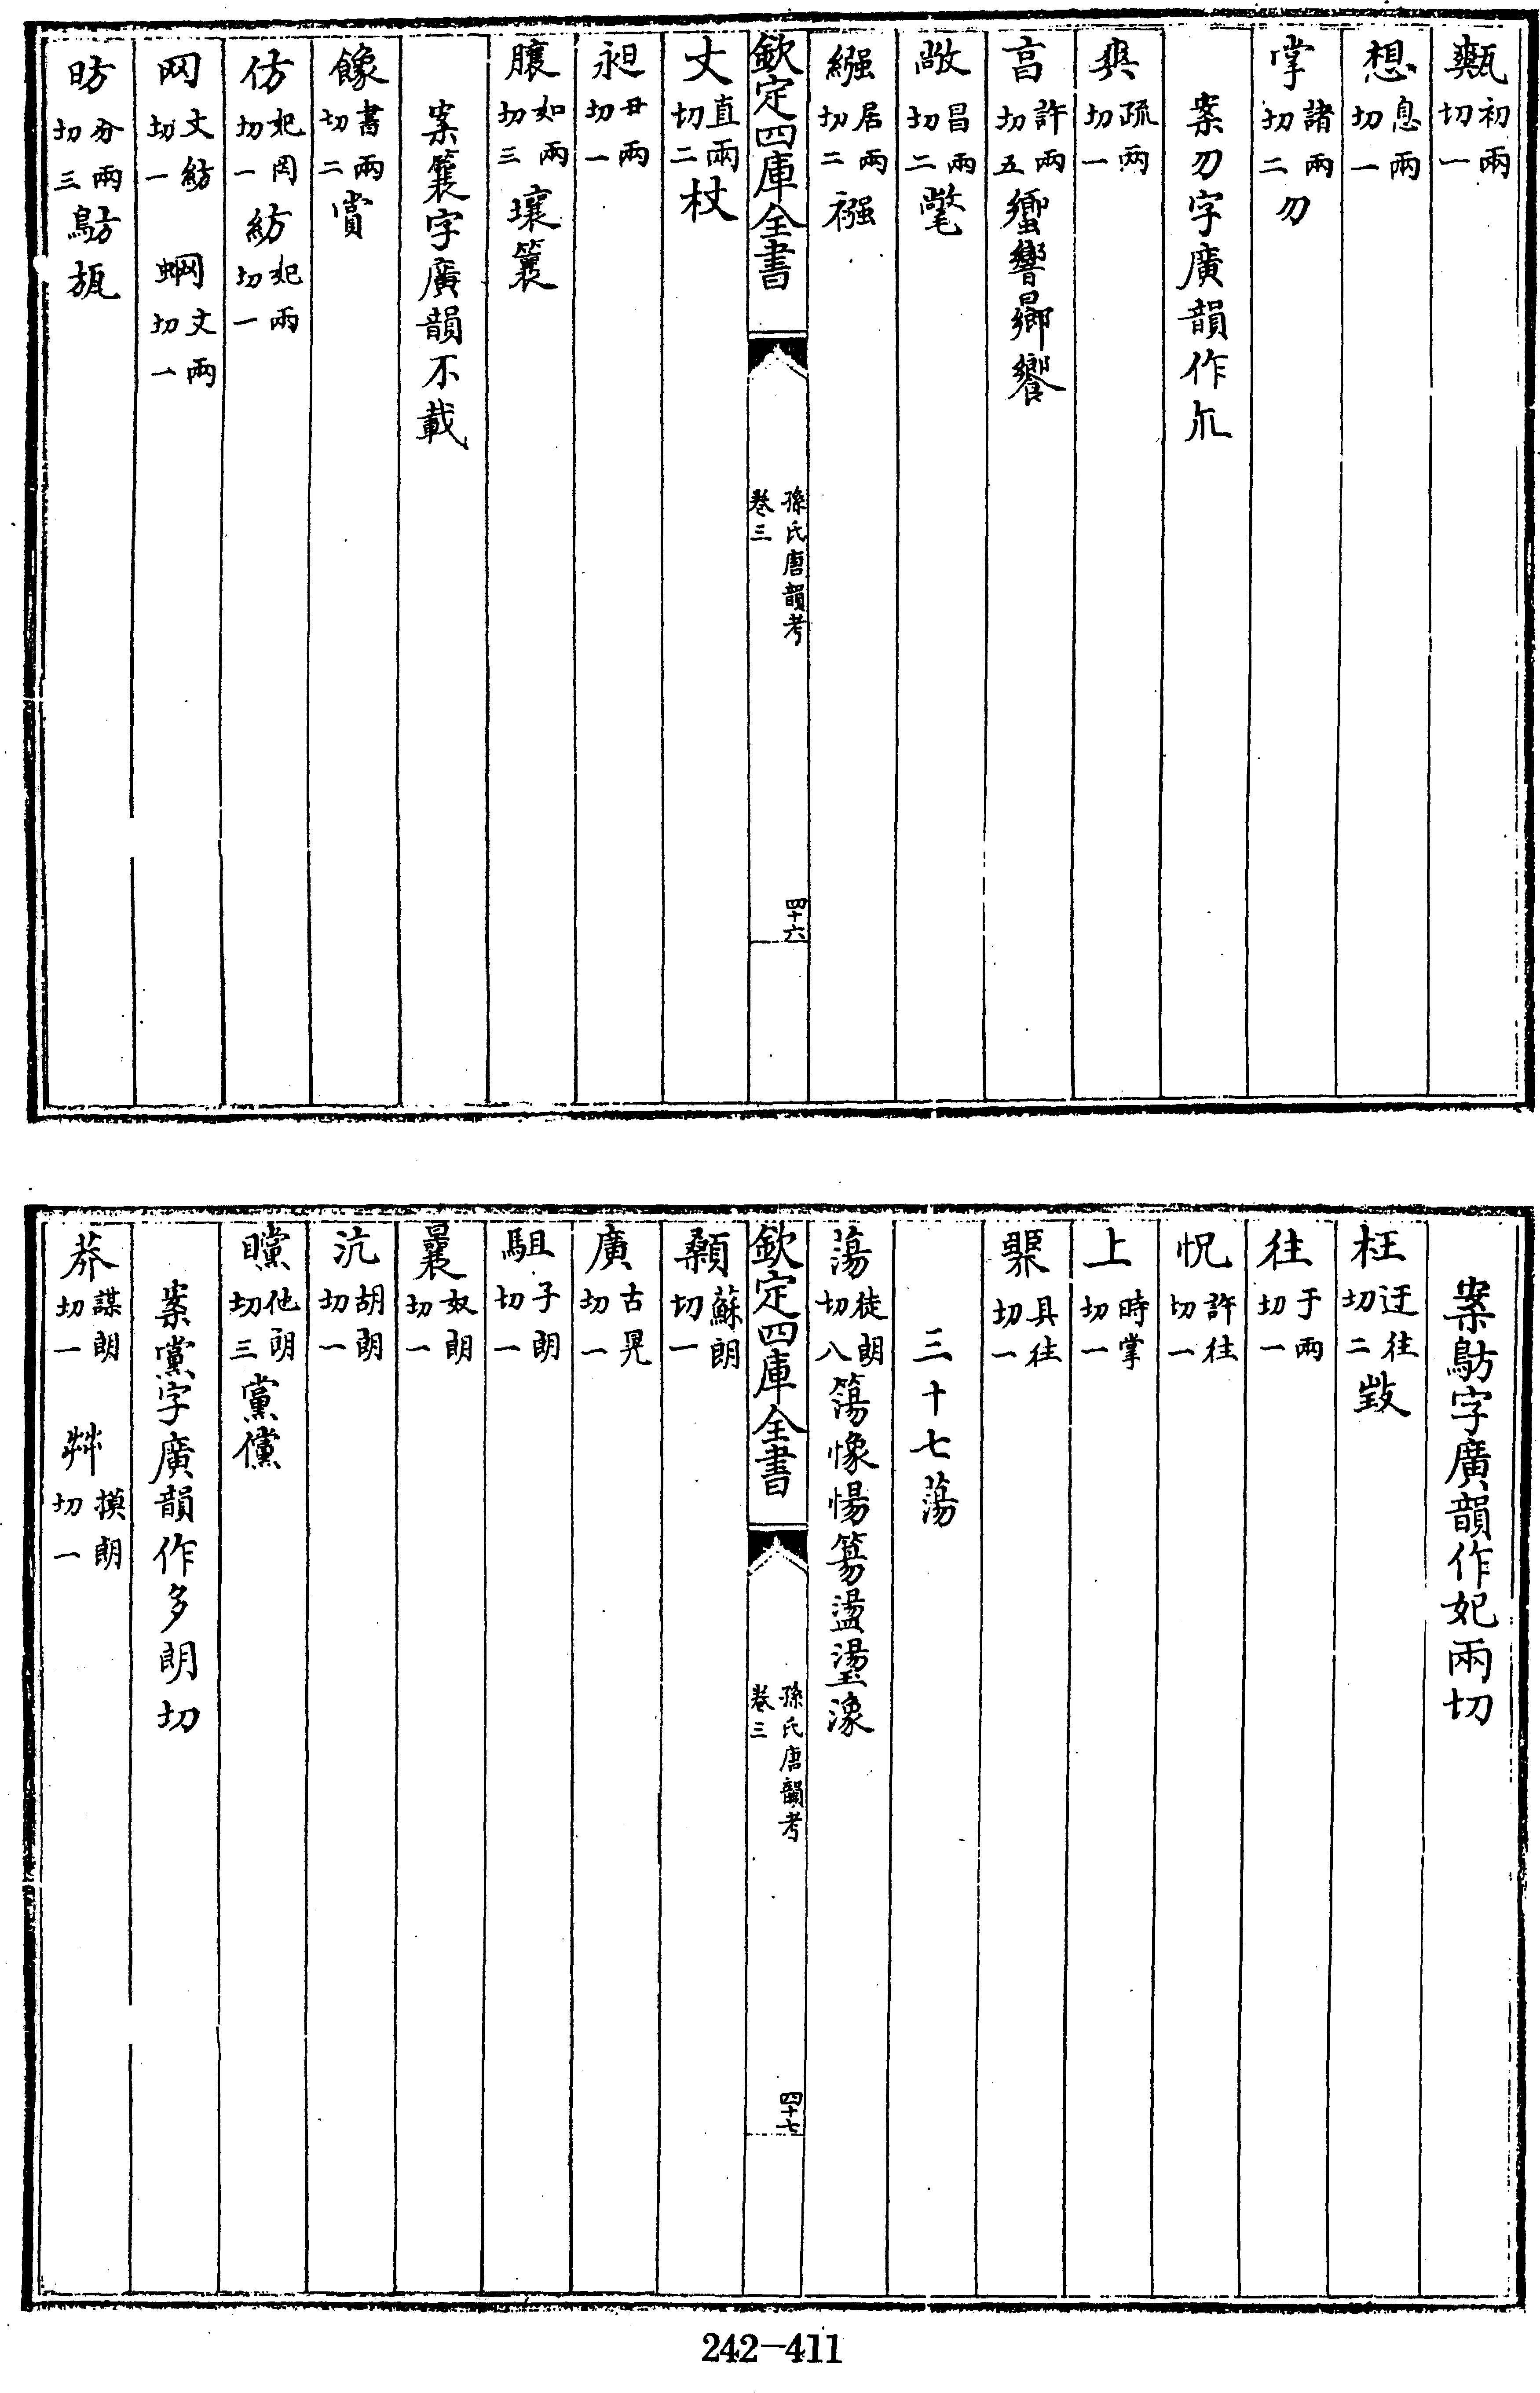 甐初兩切一
想息兩切一
掌諸兩切二 𠂆
案𠂆字廣韻作𠂆
爽疏兩切一
亯許兩切五蠁響曏饗
敞昌兩切二氅
繈居兩切二襁
欽定四庫全書
孫氏唐韻考
卷三
四十六
丈直兩切二杖
昶丑兩切一
膿如兩切三壤簔
案簔字廣韻不載
餯書兩切二賞
仿妃罔切一 紡妃兩切一
网文紡切一 蝄文兩切一
昉分兩切三鴋瓬
案鴋字廣韻作妃兩切
枉迋往切二
往于兩切一
怳許往切一
上時掌切一
具往切一
三十七蕩
蕩徒朗切八簜愓盪璗潒
欽定四庫全書
孫氏唐韻考
卷三
四十七
顙蘇朗切一
廣古晃切一
駔子朗切一
曩奴朗切一
沆胡朗切一
曭他朗切三黨儻
案黨字廣韻作多朗切
莽謀朗切一 茻摸朗切一
242-411